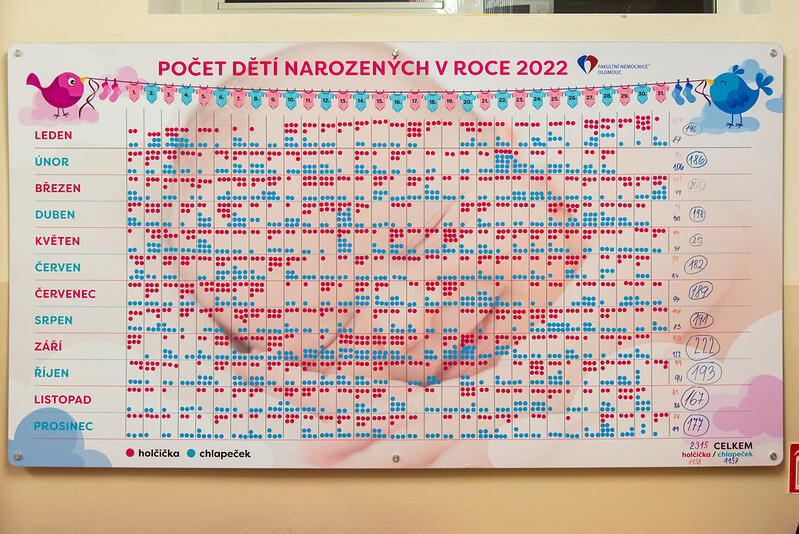 POČET DĚTÍ NAROZENÝCH V ROCE 2022
FAKULTNÍ NEMOCNICE
OLOMOUC
1. 2. 3. 4. 5. 6. 7. 8. 9. 10. 11. 12. 13. 14. 15. 16. 17. 18. 19. 20. 21. 22. 23. 24. 25. 26. 27. 28. 29. 30. 31.
LEDEN
ÚNOR 186
BŘEZEN
DUBEN 198
KVĚTEN 212
ČERVEN 182
ČERVENEC 189
SRPEN 191
ZÁŘÍ 222
ŘÍJEN 94 193
LISTOPAD 167
PROSINEC 177
holčička chlapeček
2315 CELKEM
holčička / chlapeček
1158 1157